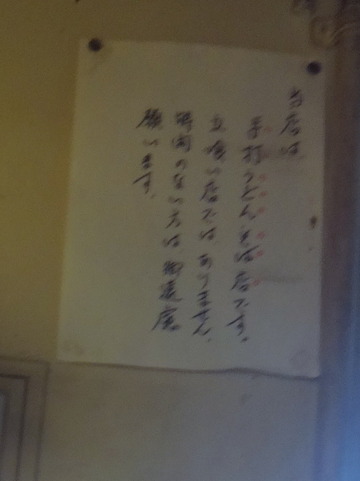 当店は
手打うどん、そば店です。
立喰い店ではありません。
時間のない方は御遠慮
願います。